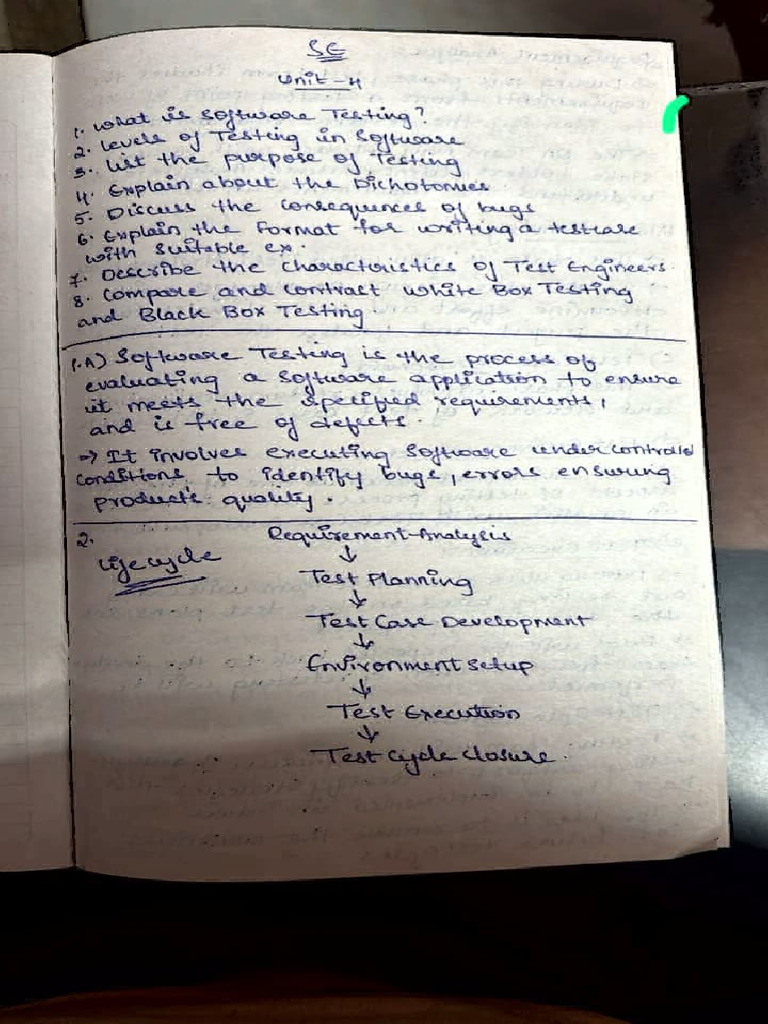 SE
Unit-4
1. What is Software Testing?
2. Levels of Testing in Software
3. List the purpose of Testing
4. Explain about the Dichotomies.
5. Discuss the consequences of bugs
6. Explain the Format for writing a testcase
with suitable ex.
7. Describe the characteristics of Test Engineers.
8. Compare and contract White Box Testing
and Black Box Testing.
1.A) Software Testing is the process of
evaluating a software application to ensure
it meets the specified requirements,
and is free of defects.
=> It involves executing software under controlled
conditions to identify bugs, errors ensuring
products quality.
2.
Requirement Analysis
Life cycle
↓
Test Planning
↓
Test Case Development
↓
Environment setup
↓
Test Execution
↓
Test cycle closure.